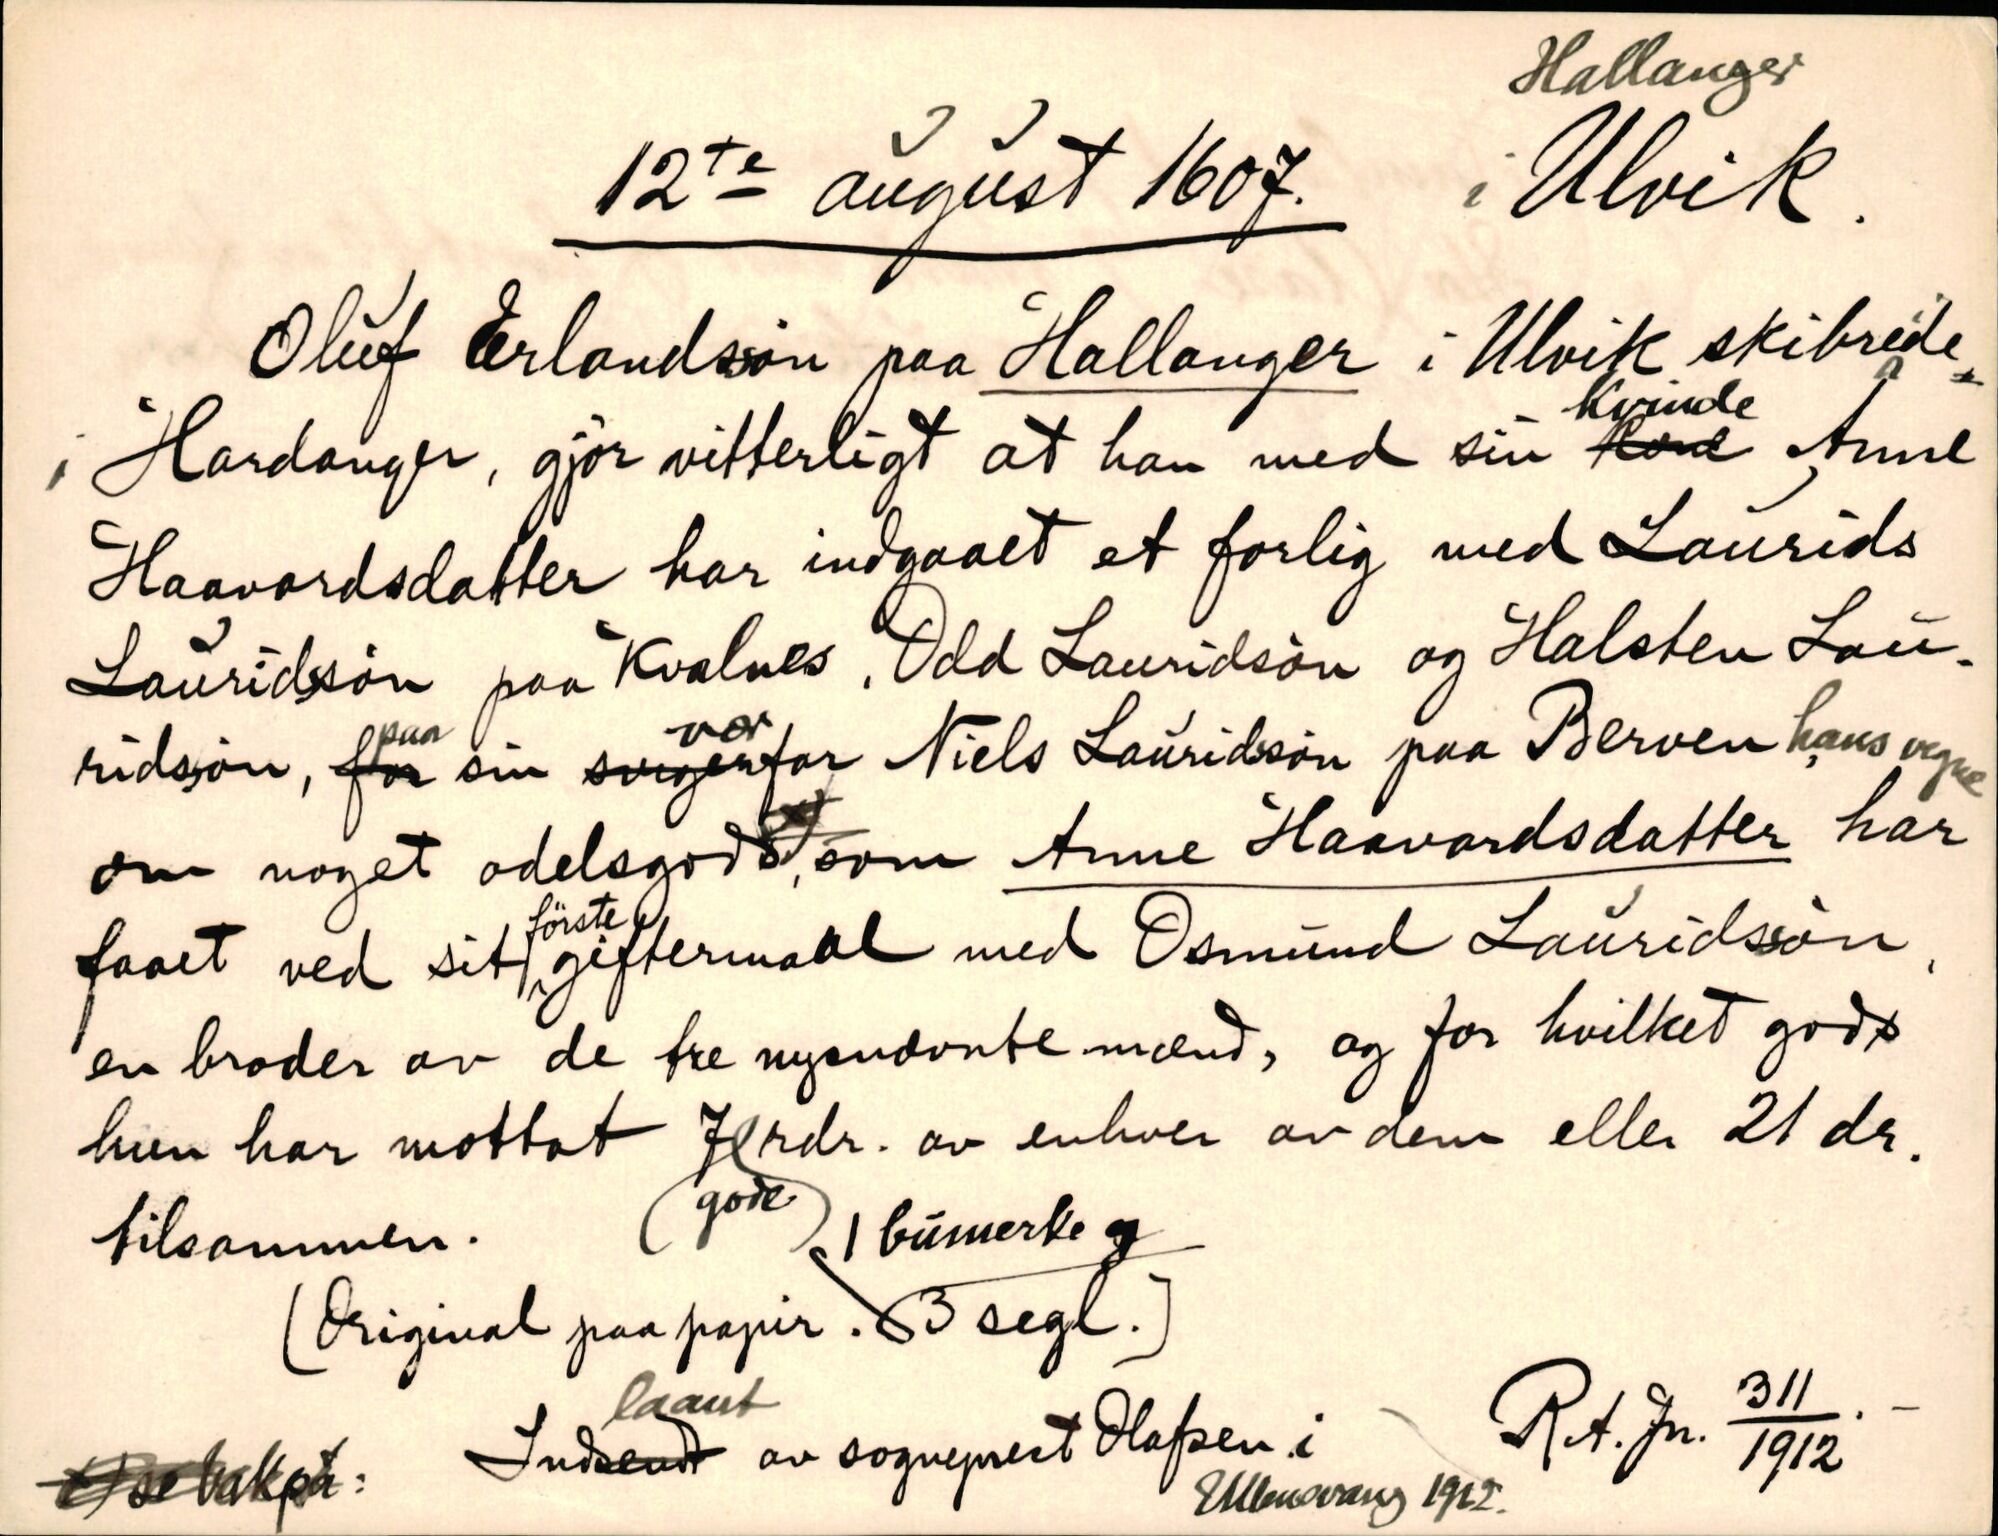 Hallanger
12te august 1607. i Ulvik.
Oluf Erlandssøn paa Hallanger i Ulvik skibrede
i Hardanger, gjør vitterligt at han med sin kvinde Anne
Haavardsdatter har indgaaet et forlig med Laurids
Lauridssøn paa Kvalnes, Odd Lauridsøn og Halsten Lau-
ridsøn, paa sin verfar Niels Lauridssøn paa Berven hans vegne
om noget odelsgods, som Anne Haavardsdatter har
faaet ved sit første giftermaal med Osmund Lauridssøn,
en broder av de tre nysnævnte mænd, og for hvilket gods
hun har mottat 7 rdr. av enhver av dem eller 21 dr.
(gode)
tilsammen. 1 bumerke og
(Original paa papir. 3 segl.)
laant
Indsendt av sogneprest Olafsen i
Ullensvang 1912.
R.A. Jn. 311/1912.
x) se bakpå: